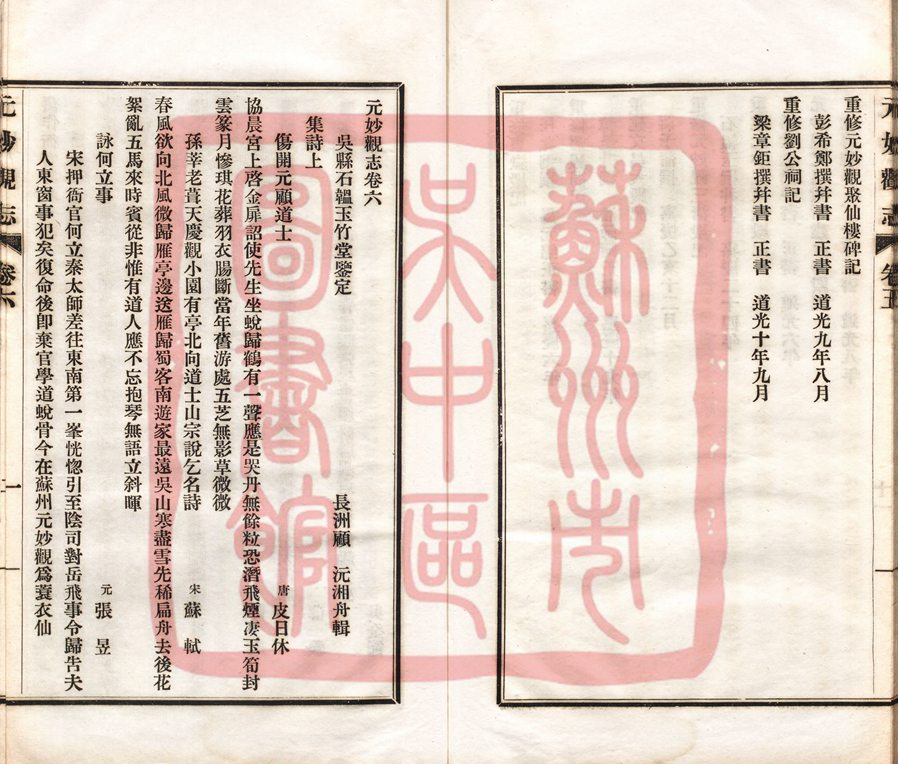 元妙觀志 卷五
重修元妙觀聚仙樓碑記
彭希鄭撰幷書 正書 道光九年八月
重修劉公祠記
梁章鉅撰幷書 正書 道光十年九月
蘇州市
吳中區
圖書館
元妙觀志卷六
吳縣石韞玉竹堂鑒定 長洲顧 沅湘舟輯
集詩上
傷開元顧道士 唐 皮日休
協晨宮上啓金扉詔使先生坐蛻歸鶴有一聲應是哭丹無餘粒恐潛飛煙凄玉筍封
雲篆月慘琪花葬羽衣腸斷當年舊游處五芝無影草微微
孫莘老葺天慶觀小園有亭北向道士山宗說乞名詩 宋 蘇 軾
春風欲向北風微歸雁亭邊送雁歸蜀客南遊家最遠吳山寒盡雪先稀扁舟去後花
絮亂五馬來時賓從非惟有道人應不忘抱琴無語立斜暉
詠何立事 元 張 昱
宋押衙官何立秦太師差往東南第一峯恍惚引至陰司對岳飛事令歸告夫
人東窗事犯矣復命後卽棄官學道蛻骨今在蘇州元妙觀爲蓑衣仙
元妙觀志 卷六 一